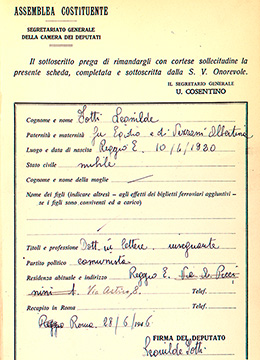 ASSEMBLEA COSTITUENTE
SEGRETARIATO GENERALE
DELLA CAMERA DEI DEPUTATI
Il sottoscritto prega di rimandargli con cortese sollecitudine la
presente scheda, completata e sottoscritta dalla S. V. Onorevole.
IL SEGRETARIO GENERALE
U. COSENTINO
Cognome e nome Iotti Leonilde
Paternità e maternità fu Egidio e di Vezzani Albertina
Luogo e data di nascita Reggio E. 10/4/1920
Stato civile nubile
Cognome e nome della moglie
Nome dei figli (indicare altresì - agli effetti dei biglietti ferroviari aggiuntivi -
se i figli sono conviventi ed a carico)
Titoli e professione Dott. in lettere insegnante
Partito politico comunista
Residenza abituale e indirizzo Reggio E. Via
Telef.
Recapito in Roma Telef.
Roma 28/6/1946
FIRMA DEL DEPUTATO
Leonilde Iotti